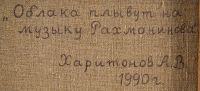 „Облака плывут на
музыку Рахманинова"
Харитонов А.В.
1990 г.